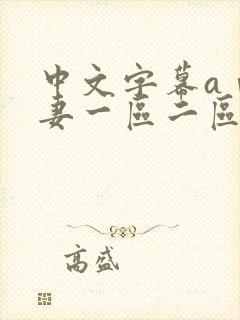 中文字幕a
妻一區二區
高盛